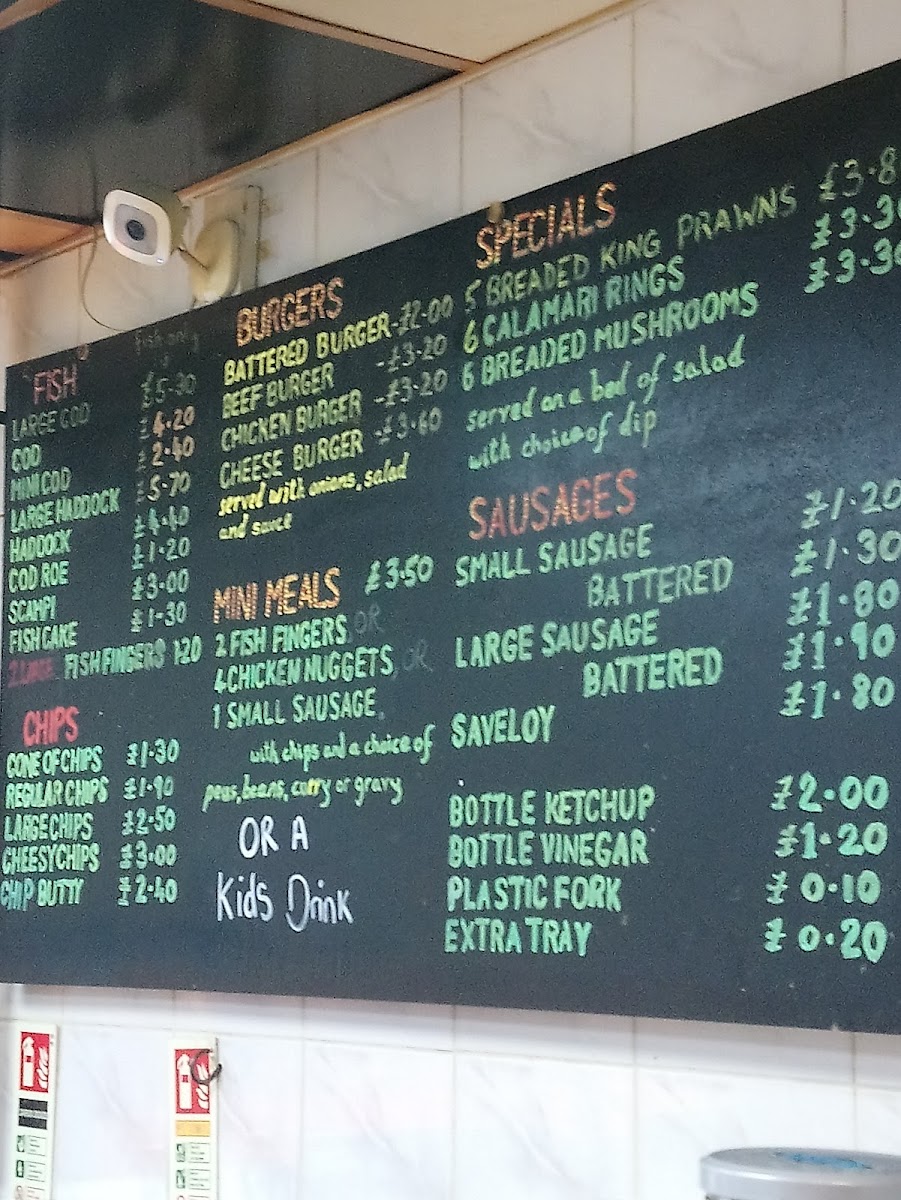 FISH
Fish only
LARGE COD £5-30
COD £4-20
MINI COD £2-40
LARGE HADDOCK £5-70
HADDOCK £4-40
COD ROE £1-20
SCAMPI £3-00
FISH CAKE £1-30
2 LARGE FISH FINGERS 1·20
CHIPS
CONE OF CHIPS £1-30
REGULAR CHIPS £1-90
LARGE CHIPS £2-50
CHEESY CHIPS £3-00
CHIP BUTTY £2-40
BURGERS
BATTERED BURGER-£2-00
BEEF BURGER -£3-20
CHICKEN BURGER -£3-20
CHEESE BURGER -£3-60
served with onions, salad
and sauce
MINI MEALS £3·50
2 FISH FINGERS OR
4 CHICKEN NUGGETS OR
1 SMALL SAUSAGE.
with chips and a choice of
peas, beans, curry or gravy
OR A
Kids Drink
SPECIALS
5 BREADED KING PRAWNS £3·8
6 CALAMARI RINGS £3·30
6 BREADED MUSHROOMS £3·30
served on a bed of salad
with choice of dip
SAUSAGES
SMALL SAUSAGE £1·20
BATTERED £1·30
LARGE SAUSAGE £1·80
BATTERED £1·90
SAVELOY £1·80
BOTTLE KETCHUP £2·00
BOTTLE VINEGAR £1·20
PLASTIC FORK £0·10
EXTRA TRAY £0·20